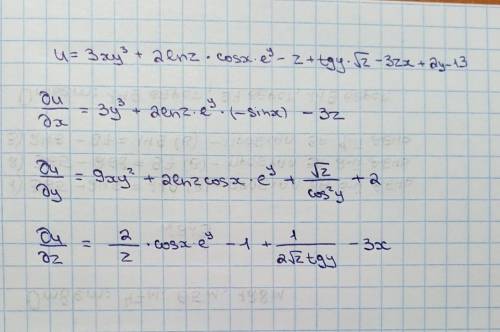 u = 3xy³ + 2lnz · cosx · e^y − z + tgy · √z − 3zx + 2y − 13
∂u/∂x = 3y³ + 2lnz · e^y · (−sinx) − 3z
∂u/∂y = 9xy² + 2lnz cosx · e^y + √z/cos²y + 2
∂u/∂z = 2/z · cosx · e^y − 1 + 1/(2√z tgy) − 3x